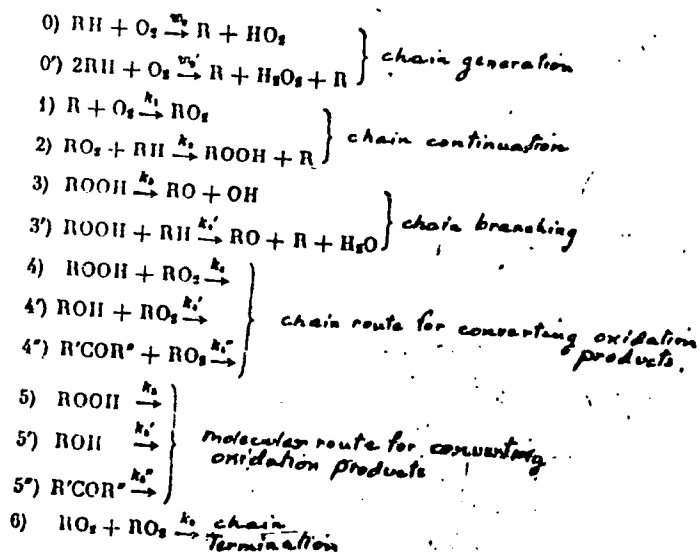 0) RH + O₂ —w₀→ R + HO₂
0') 2RH + O₂ —w₀'→ R + H₂O₂ + R
} chain generation
1) R + O₂ —k₁→ RO₂
2) RO₂ + RH —k₂→ ROOH + R
} chain continuation
3) ROOH —k₃→ RO + OH
3') ROOH + RH —k₃'→ RO + R + H₂O
} chain branching
4) ROOH + RO₂ —k₄→
4') ROH + RO₂ —k₄'→
4") R'COR" + RO₂ —k₄"→
} chain route for converting oxidation
products.
5) ROOH —k₅→
5') ROH —k₅'→
5") R'COR" —k₅"→
} molecular route for converting
oxidation products
6) RO₂ + RO₂ —k₆→ chain
Termination